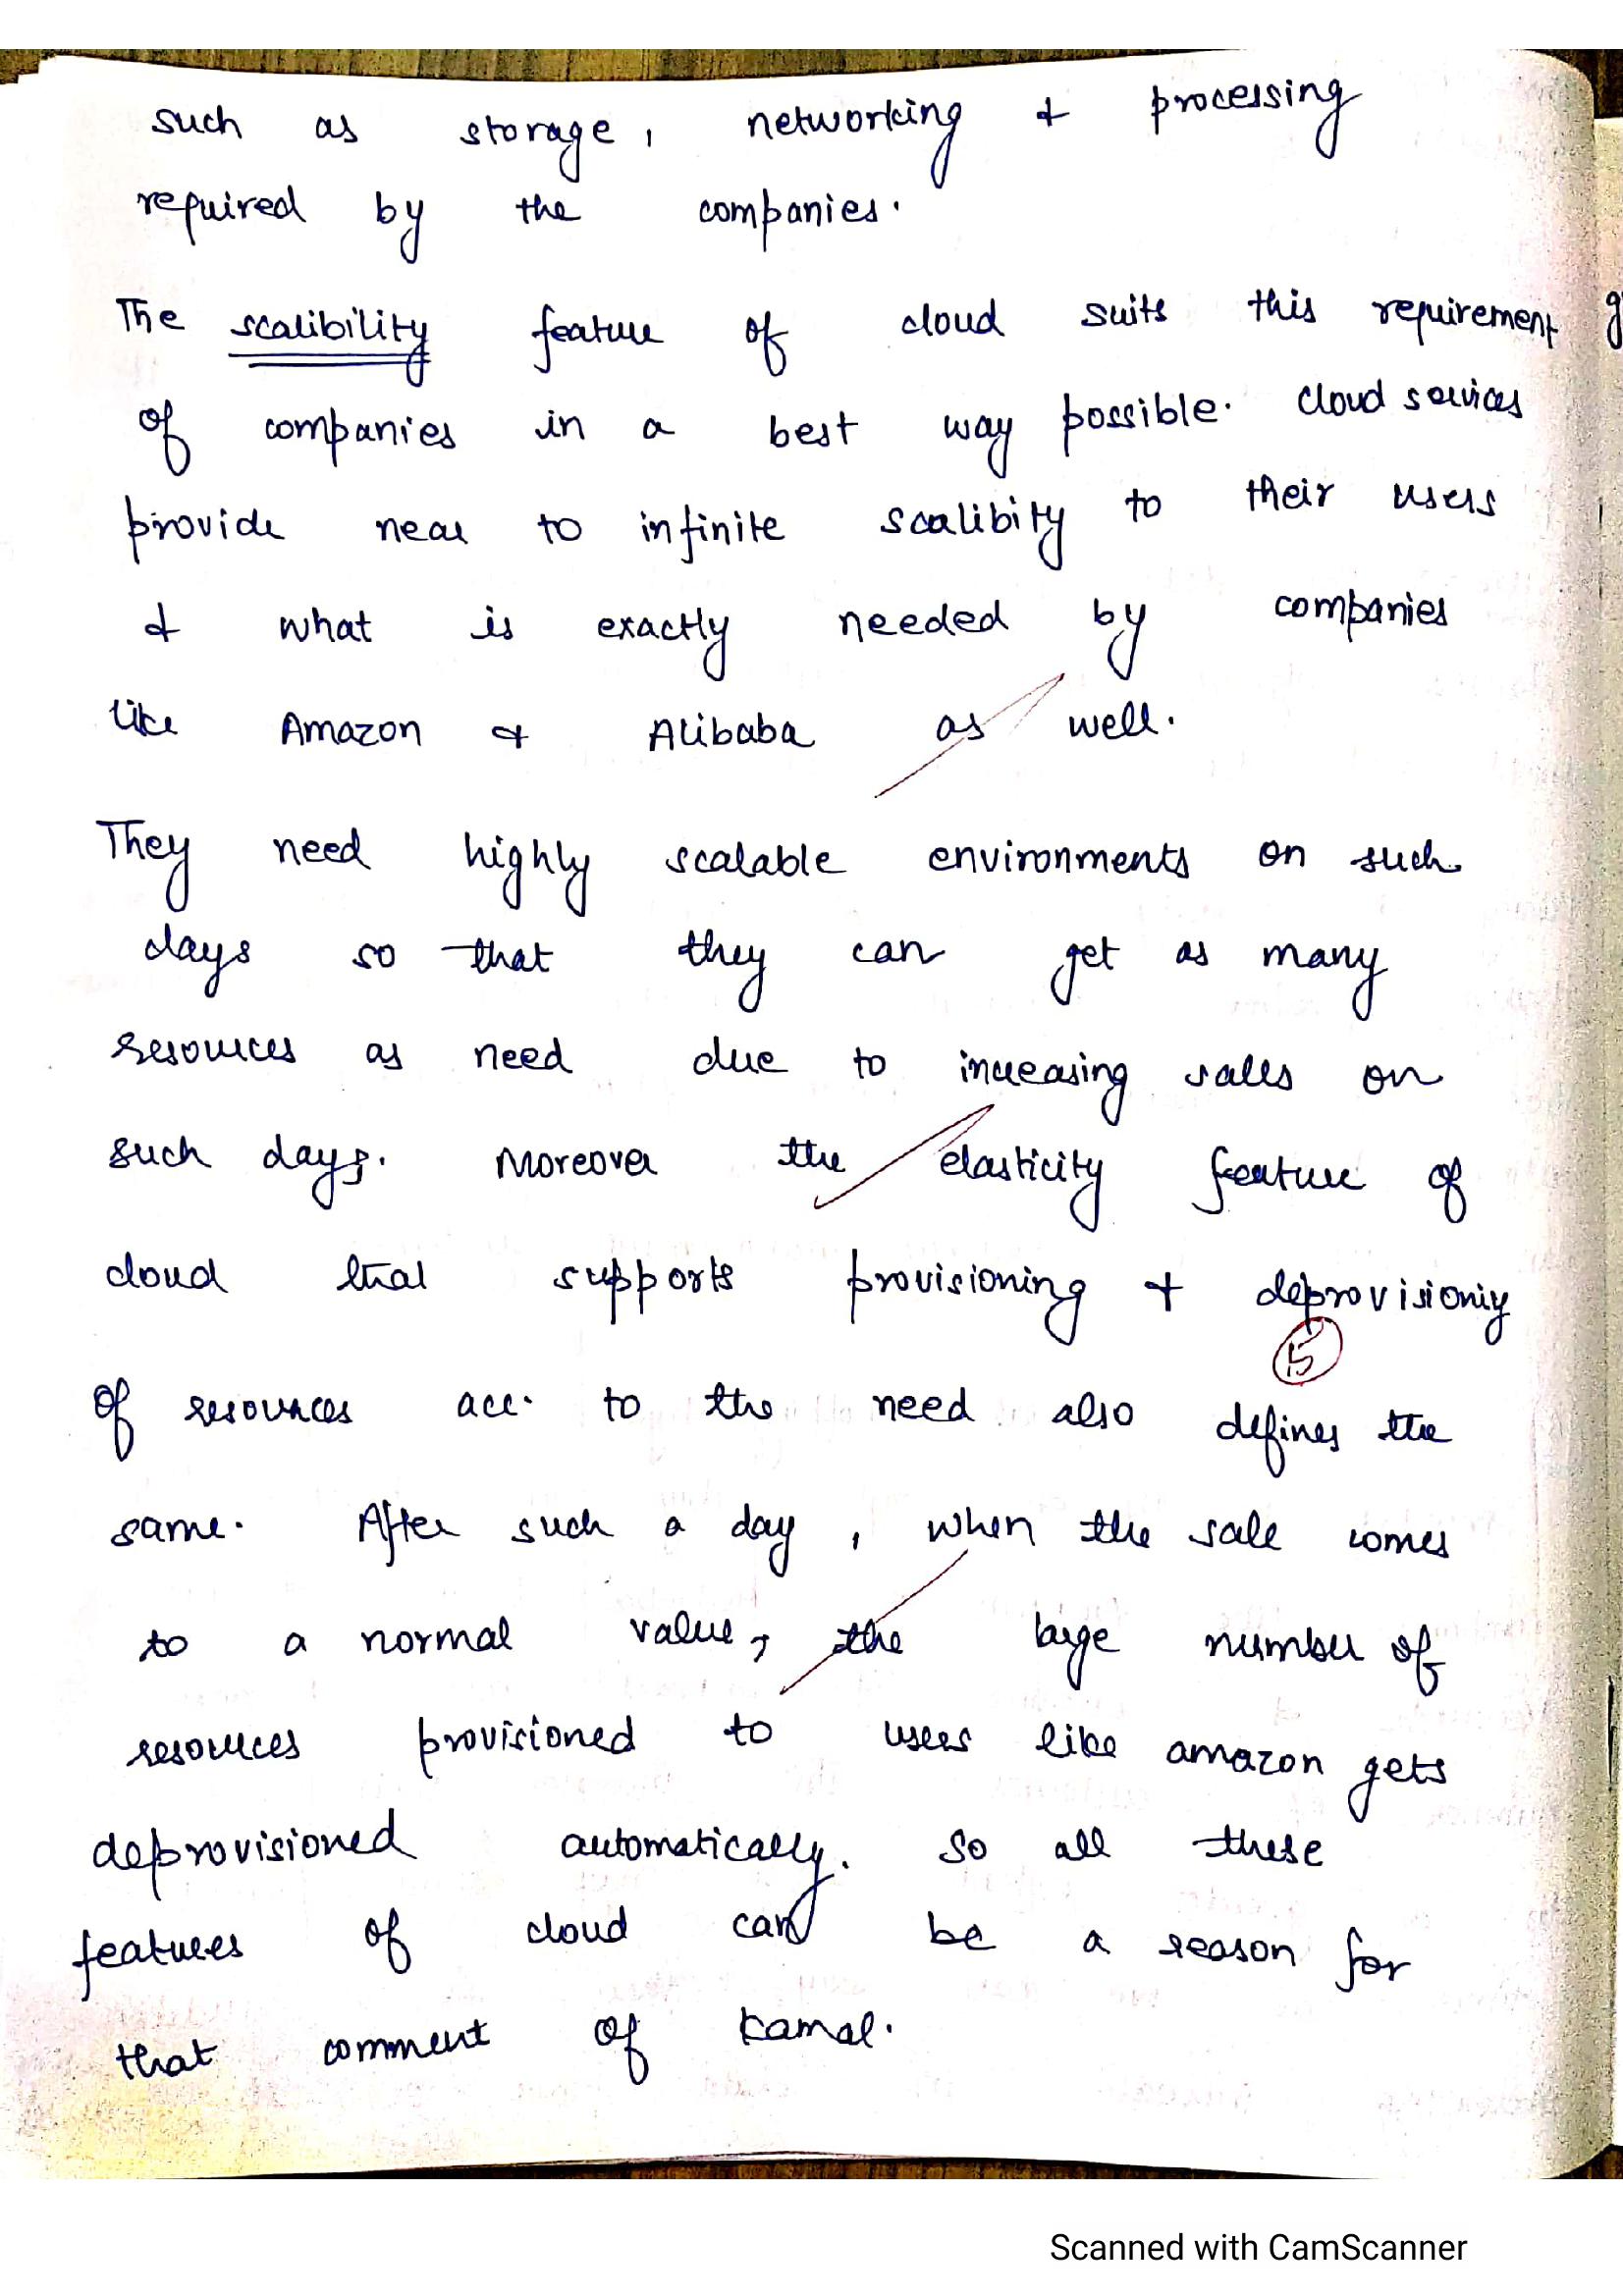 such as storage, networking & processing
required by the companies.
The scalibility feature of cloud suits this requirement
of companies in a best way possible. Cloud services
provide near to infinite scalibity to their users
& what is exactly needed by companies
like Amazon & Alibaba as well.
They need highly scalable environments on such
days so that they can get as many
resources as need due to increasing sales on
such days. Moreover the elasticity feature of
cloud that supports provisioning & deprovisioniy
5
of resources acc. to the need also defines the
same. After such a day, when the sale comes
to a normal value, the large number of
resources provisioned to users like amazon gets
deprovisioned automatically. So all these
features of cloud can be a reason for
that comment of Kamal.
Scanned with CamScanner